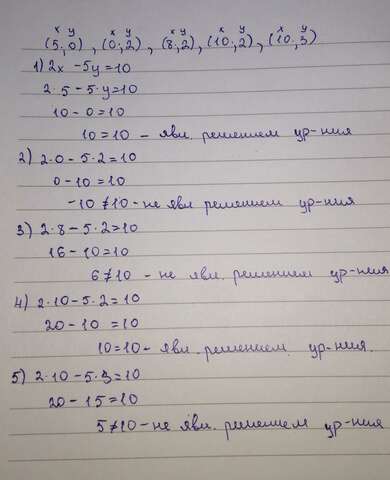 x y x y x y x y x y
(5,0), (0,2), (8,2), (10,2), (10,3)
1) 2x - 5y = 10
2·5 - 5·y = 10
10 - 0 = 10
10 = 10 - явл. решением ур-ния
2) 2·0 - 5·2 = 10
0 - 10 = 10
-10 ≠ 10 - не явл решением ур-ния
3) 2·8 - 5·2 = 10
16 - 10 = 10
6 ≠ 10 - не явл. решением ур-ния
4) 2·10 - 5·2 = 10
20 - 10 = 10
10 = 10 - явл. решением ур-ния.
5) 2·10 - 5·3 = 10
20 - 15 = 10
5 ≠ 10 - не явл. решением ур-ния